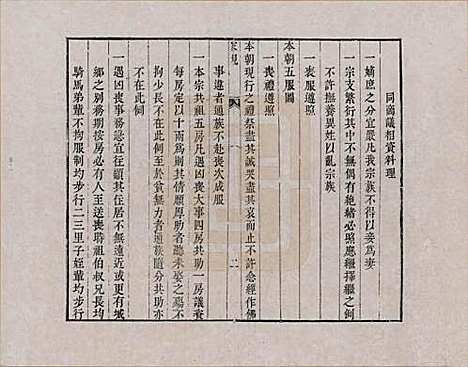 同商議相資料理
一嫡庶之分宜嚴凡我宗族不得以妾為妻
一宗支繁衍其中不無偶有絕緒必照應繼擇繼之例
不許撫養異姓以亂宗族
一喪服遵照
本朝五服圖
一喪禮遵照
本朝現行之禮祭盡其誠哭盡其哀而止不許念經作佛
家規
二
事違者通族不赴喪次成服
一本宗共祖五房凡遇凶喪大事四房共助一房議賫
每房定以十兩為則其情願厚助者聽未娶之殤不
拘少長不在此例其十分苦寒者通族隨分共助亦
不在此例
一遇凶喪事各宜齊集但其住居不無遠近更有城
鄉之別務期按房必有人至送喪時祖伯叔兄長均
騎馬弟輩不拘服制均步行二三里子姪輩均步行